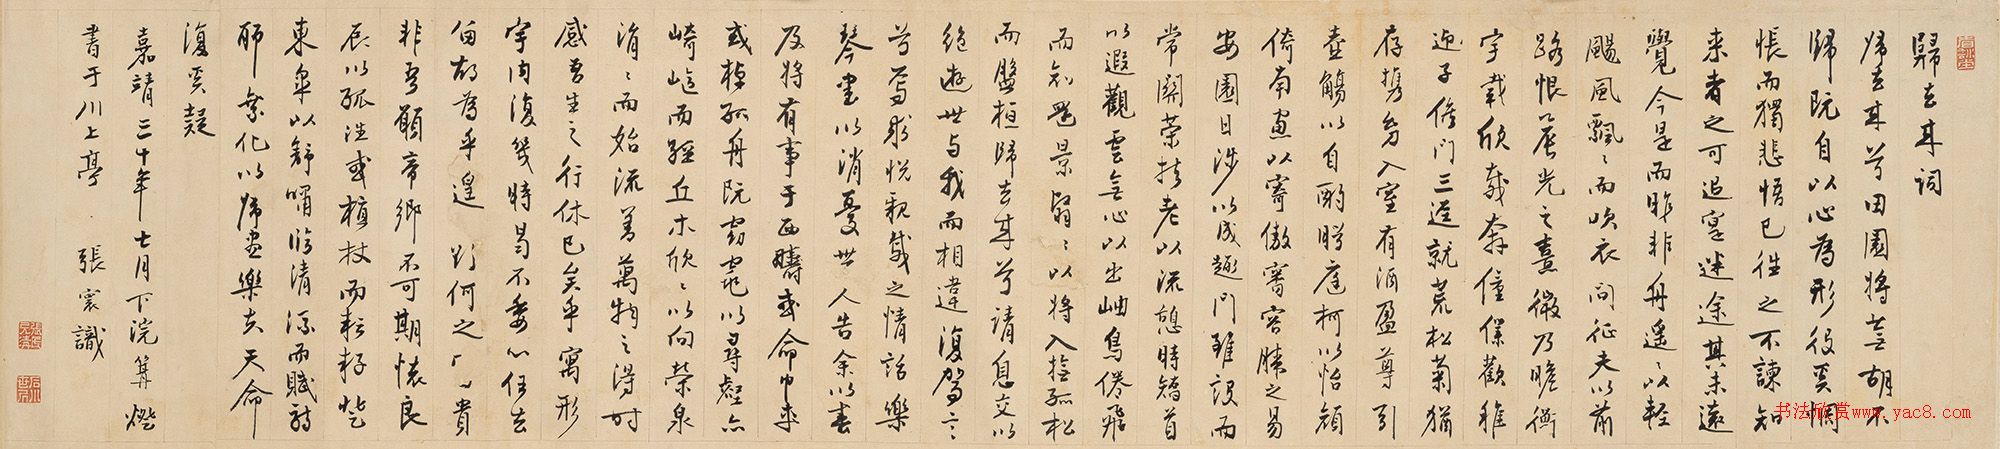 歸去來詞
歸去來兮田園將蕪胡不
歸既自以心為形役奚惆
悵而獨悲悟已往之不諫知
來者之可追寔迷途其未遠
覺今是而昨非舟遥〻以輕
颺風飄〻而吹衣問征夫以前
路恨晨光之熹微乃瞻衡
宇載欣載奔僮僕歡
迎子候門三逕就荒松菊猶
存携幼入室有酒盈尊引
壺觴以自酌眄庭柯以怡顔
倚南窗以寄傲審容膝之易
安園日涉以成趣門雖設而
常關策扶老以流憩時矯首
以遐觀雲無心以出岫鳥倦飛
而知還景翳〻以將入撫孤松
而盤桓歸去來兮請息交以
絶遊世與我而相違復駕言
兮焉求悦親戚之情話樂
琴書以消憂世人告余以春
及將有事于西疇或命巾車
或棹孤舟既窈窕以尋壑亦
崎嶇而經丘木欣〻以向榮泉
涓〻而始流善萬物之得時
感吾生之行休已矣乎寓形
宇内復幾時曷不委心任去
留胡為乎遑〻何之
非吾願帝鄉不可期懷良
辰以孤往或植杖而耘耔登
東皋以舒嘯臨清流而賦詩
聊乘化以歸盡樂夫天命
復奚疑
嘉靖三十年七月下浣篝燈
書于川上亭 張寰識
书法欣赏www.yac8.com